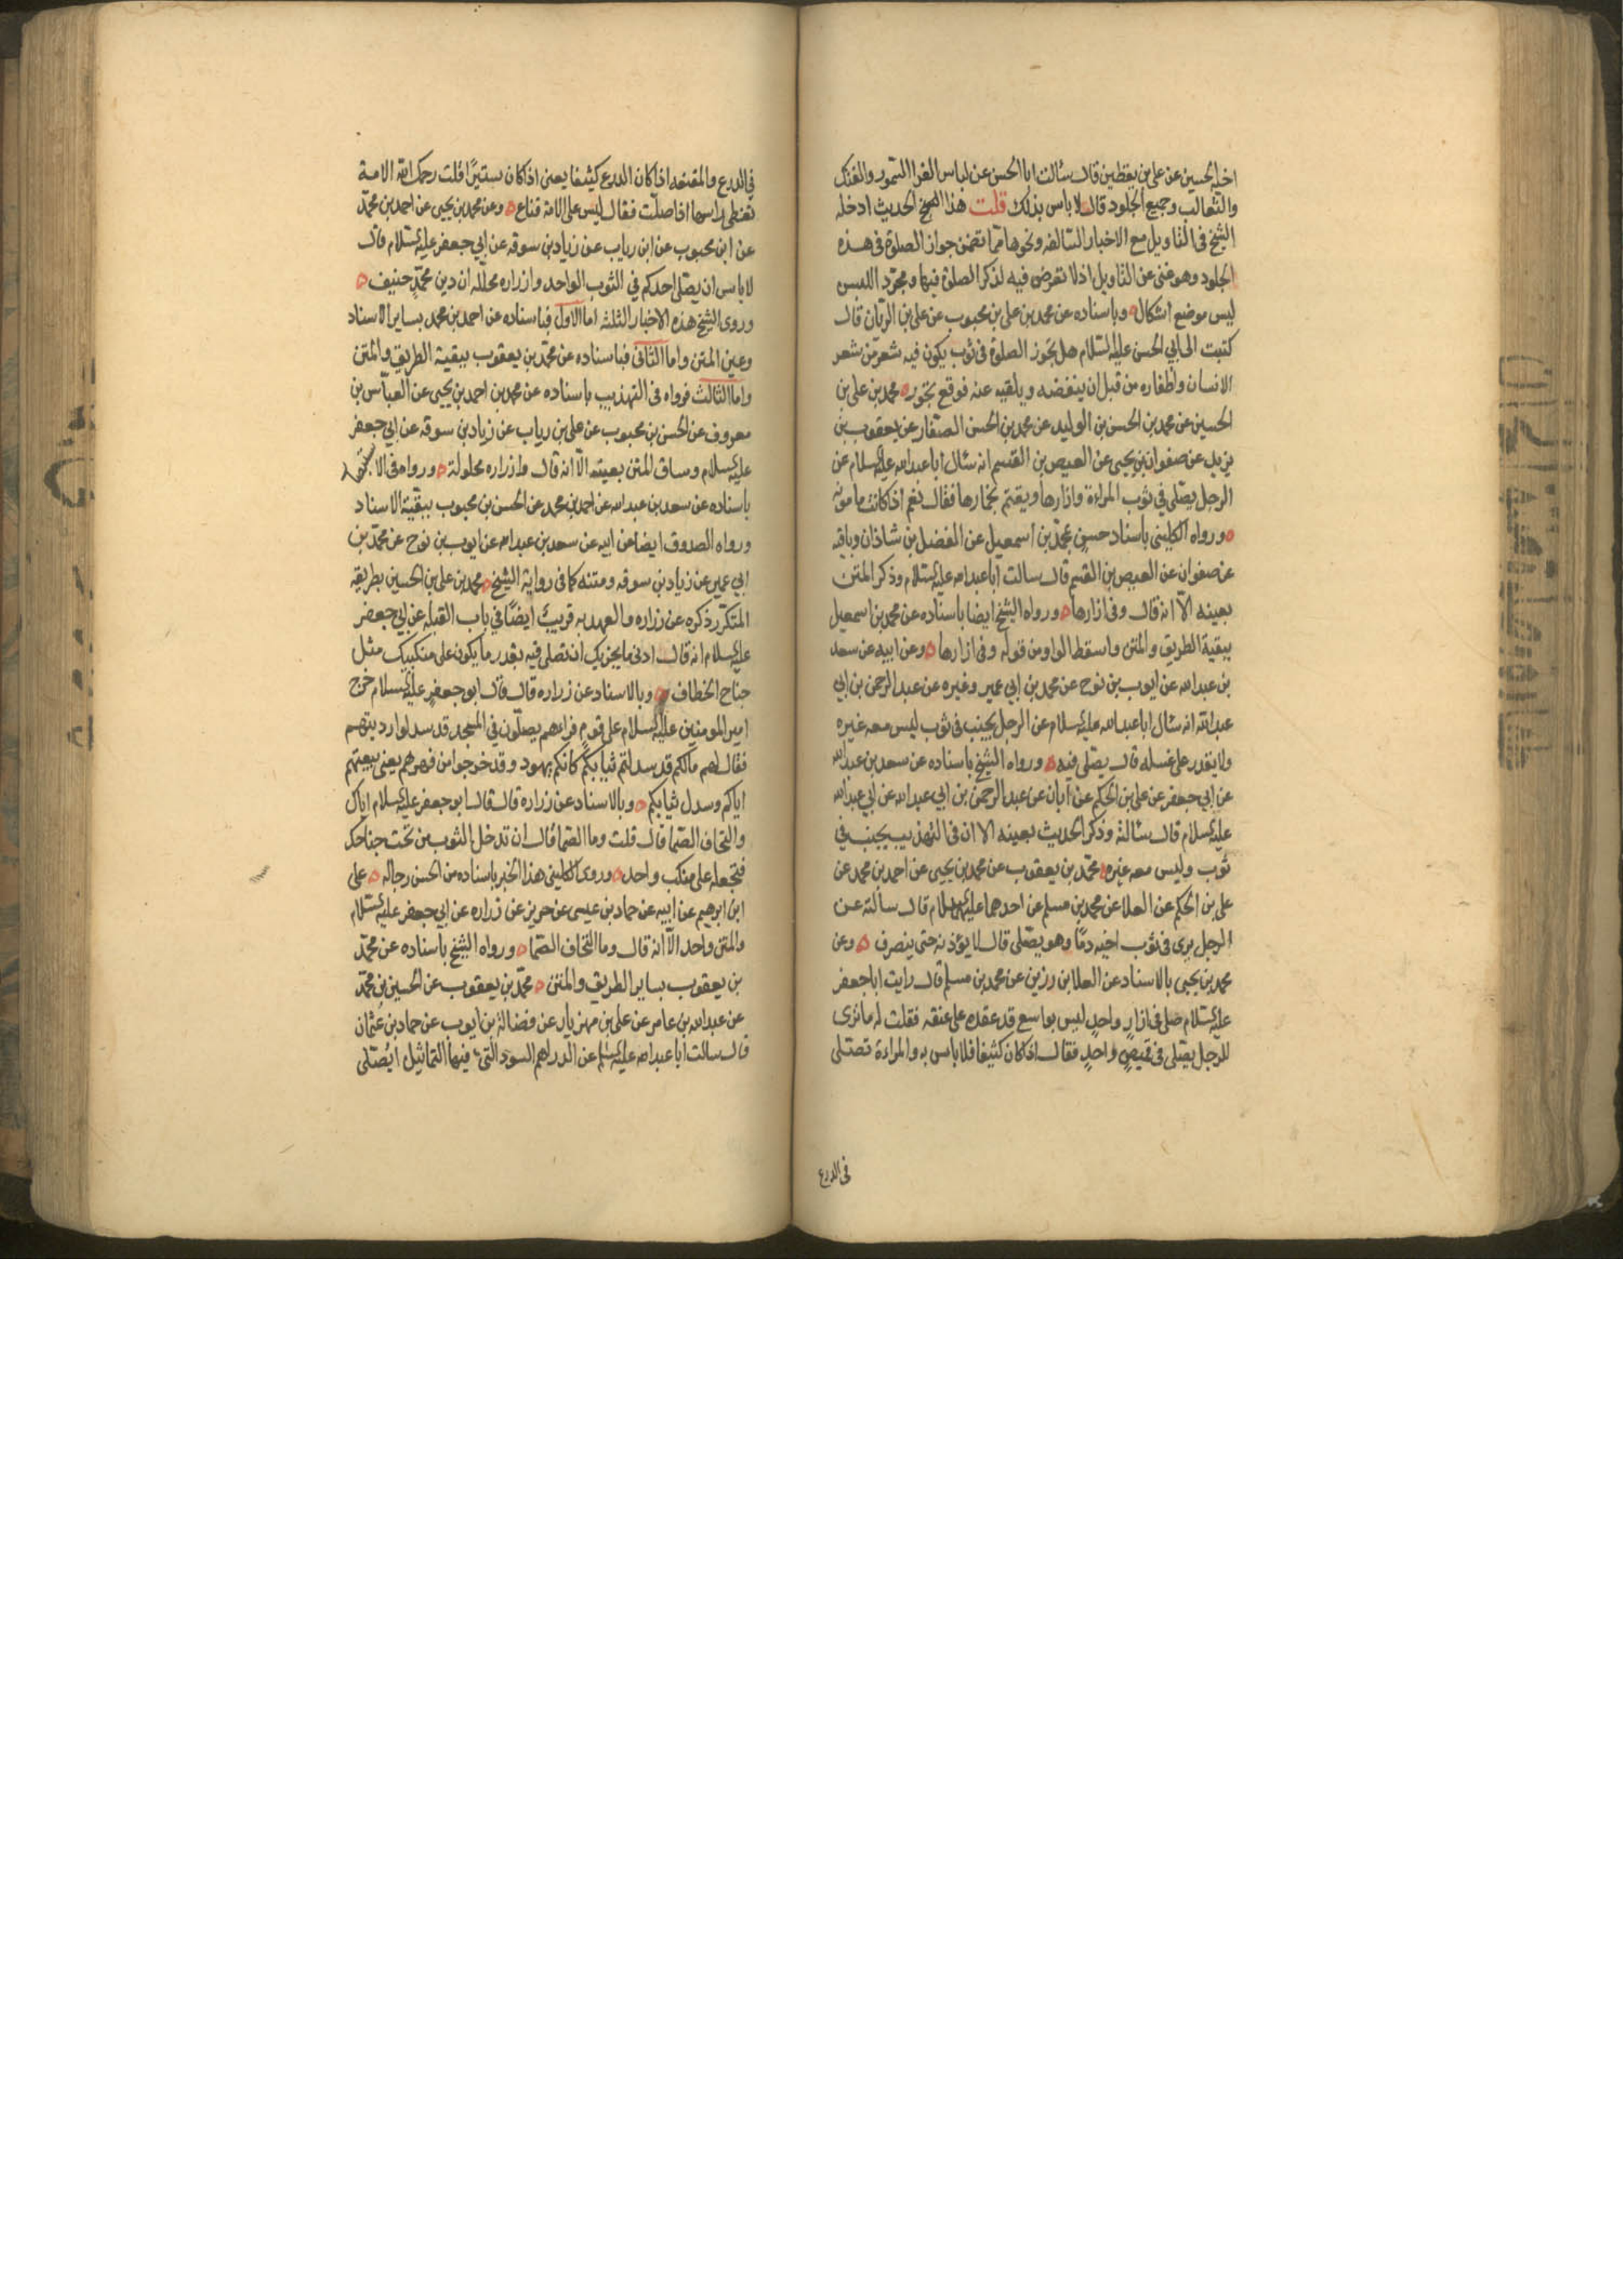 اخيه الحسين عن علي بن يقطين قال سئالت ابا الحسن عن لباس الفرا السمور والفنك
والثعالب وجميع الجلود قال لا باس بذلك قلت هذا الحديث ادخله
الشيخ في التاويل مع الاخبار السالفه ونحوها مما تضمن جواز الصلوة في هذه
الجلود وهو غني عن التاويل اذ لا تعرض فيه لذكر الصلوة فيها ومجرد اللبس
ليس موضع اشكال وباسناده عن محمد بن علي بن محبوب عن علي بن الريان قال
كتبت الى ابي الحسن عليه السلام هل تجوز الصلوة في ثوب يكون فيه شعر من شعر
الانسان واظفاره من قبل ان ينفضه ويلقيه عنه فوقع تجوز محمد بن علي بن
الحسين عن محمد بن الحسن بن الوليد عن محمد بن الحسن الصفار عن يعقوب بن
يزيد عن صفوان بن يحيى عن العيص بن القسم انه سئال ابا عبد الله عليه السلام عن
الرجل يصلي في ثوب المراءة وازارها ويعتم بخمارها فقال نعم اذا كانت مامونه
ورواه الكليني باسناد حسن محمد بن اسمعيل عن الفضل بن شاذان وباقيه
عن صفوان عن العيص بن القسم قال سالت ابا عبد الله عليه السلام وذكر المتن
بعينه الا انه قال وفي ازارها ورواه الشيخ ايضا باسناده عن محمد بن اسمعيل
ببقية الطريق والمتن واسقط الواو من قوله وفي ازارها وعن ابيه عن سعد
بن عبد الله عن ايوب بن نوح عن محمد بن ابي عمير وغيره عن عبد الرحمن بن ابي
عبد الله انه سئال ابا عبد الله عليه السلام عن الرجل يجنب في ثوب ليس معه غيره
ولا يقدر على غسله قال يصلي فيه ورواه الشيخ باسناده عن سعد بن عبد الله
عن ابي جعفر عن علي بن الحكم عن ابان عن عبد الرحمن بن ابي عبد الله عن ابي عبد الله
عليه السلام قال سئالته وذكر الحديث بعينه الا ان في التهذيب يجنب في
ثوب وليس معه غيره محمد بن يعقوب عن محمد بن يحيى عن احمد بن محمد عن
علي بن الحكم عن العلا عن محمد بن مسلم عن احدهما عليهما السلام قال سالته عن
الرجل يرى في ثوب اخيه دما وهو يصلي قال لا يؤذنه حتى ينصرف وعن
محمد بن يحيى بالاسناد عن العلا بن رزين عن محمد بن مسلم قال رايت ابا جعفر
عليه السلام صلى في ازار واحد ليس بواسع قد عقده على عنقه فقلت له ما ترى
للرجل يصلي في قميص واحد فقال اذا كان كثيفا فلا باس به والمراءة تصلي
في الدرع
في الدرع والمقنعه اذا كان الدرع كثيفا يعني اذا كان ستيرا قلت رحمك الله الامة
تغطي راسها اذا صلت فقال ليس على الامة قناع وعن محمد بن يحيى عن احمد بن محمد
عن ابن محبوب عن ابن رياب عن زياد بن سوقه عن ابي جعفر عليه السلام قال
لا باس ان يصلي احدكم في الثوب الواحد وازراره محلله ان دين محمد حنيف
وروى الشيخ هذه الاخبار الثلثه اما الاول فباسناده عن احمد بن محمد بساير الاسناد
وعين المتن واما الثاني فباسناده عن محمد بن يعقوب ببقية الطريق والمتن
واما الثالث فرواه في التهذيب باسناده عن محمد بن احمد بن يحيى عن العباس بن
معروف عن الحسن بن محبوب عن علي بن رياب عن زياد بن سوقه عن ابي جعفر
عليه السلام وساق المتن بعينه الا انه قال وازراره محلولة ورواه في الاستبصار
باسناده عن سعد بن عبد الله عن احمد بن محمد عن الحسن بن محبوب ببقية الاسناد
ورواه الصدوق ايضا عن ابيه عن سعد بن عبد الله عن ايوب بن نوح عن محمد بن
ابي عمير عن زياد بن سوقه ومتنه كما في رواية الشيخ محمد بن علي بن الحسين بطريقه
المتكرر ذكره عن زراره والعهد به قريب ايضا في باب القبلة عن ابي جعفر
عليه السلام انه قال ادنى ما يجزيك ان تصلي فيه بقدر ما يكون على منكبيك مثل
جناح الخطاف وبالاسناد عن زراره قال قال ابو جعفر عليه السلام خرج
امير المومنين عليه السلام على قوم فراهم يصلون في المسجد قد سدلوا ارديتهم
فقال لهم مالكم قد سدلتم ثيابكم كانكم يهود وقد خرجوا من فهرهم يعني بيعتهم
اياكم وسدل ثيابكم وبالاسناد عن زراره قال قال ابو جعفر عليه السلام اياك
والتحاف الصما قال قلت وما الصما قال ان تدخل الثوب من تحت جناحك
فتجعله على منكب واحد وروى الكليني هذا الخبر باسناده من الحسن رجاله علي
ابن ابرهيم عن ابيه عن حماد بن عيسى عن حريز عن زراره عن ابي جعفر عليه السلام
والمتن واحد الا انه قال وما التحاف الصما ورواه الشيخ باسناده عن محمد
بن يعقوب بساير الطريق والمتن محمد بن يعقوب عن الحسين بن محمد
عن عبد الله بن عامر عن علي بن مهزيار عن فضالة بن ايوب عن حماد بن عثمان
قال سالت ابا عبد الله عليه السلام عن الدراهم السود التي فيها التماثيل ايصلي